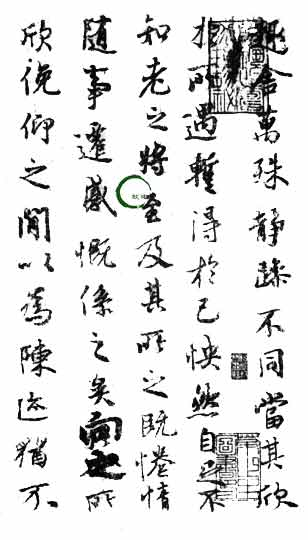 趣舍萬殊靜躁不同當其欣
於所遇暫得於己怏然自足不
知老之將至及其所之既惓情
隨事遷感慨係之矣向之所
欣俛仰之閒以為陳迹猶不